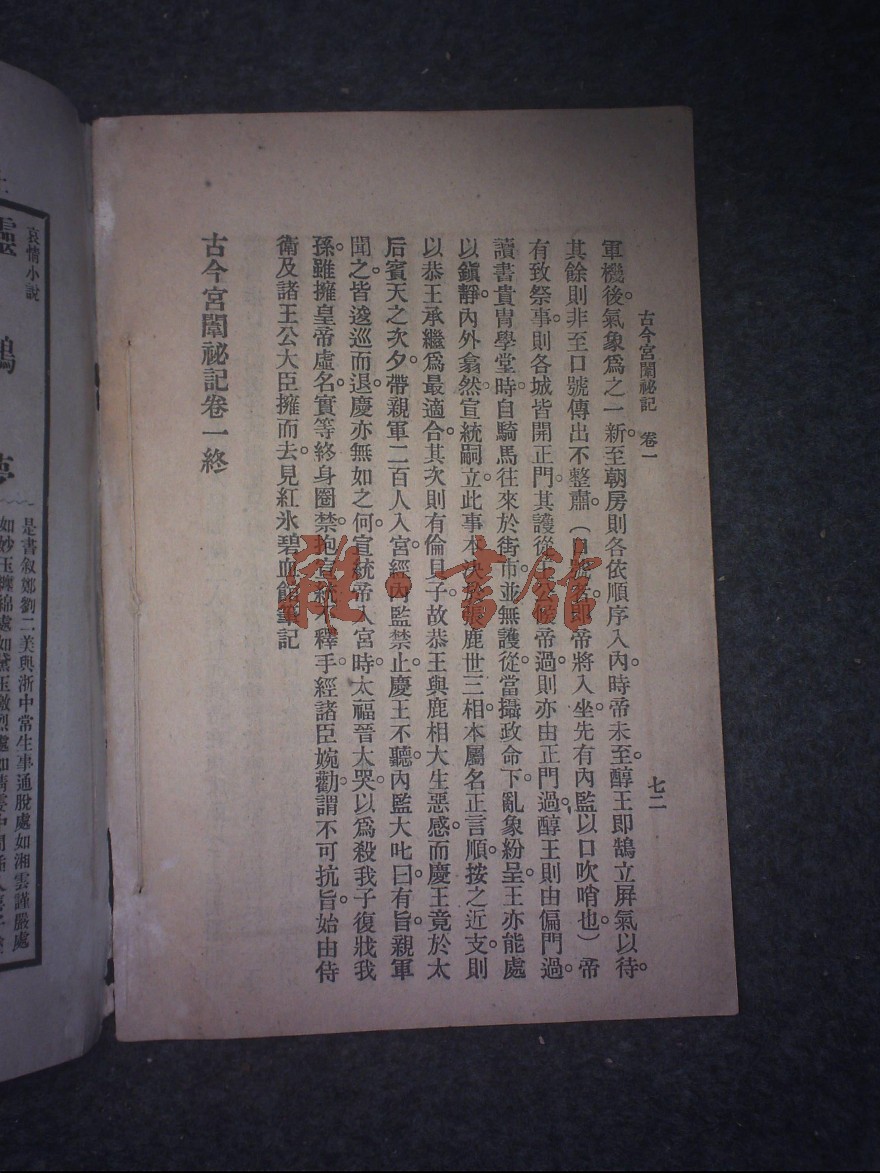 古今宮闈祕記 卷一 七二
軍機後。氣象爲之一新。至朝房則各依順序入內。時帝未至。醇王即鵠立屏氣以待。
其餘則非至口號傳出不整肅。(口號者即帝將入坐。先有內監以口吹哨也。)帝
有致祭事。則各城皆開正門。其護從王公候帝過則亦由正門過。醇王則由偏門過。
讀書貴胄學堂時。自騎馬往來於街市。並無護從。當攝政命下。亂象紛呈。王亦能處
以鎭靜。內外翕然。宣統嗣立。此事本決於張鹿世三相。本屬名正言順。按之近支。則
以恭王承繼爲最適合。其次則有倫貝子。故恭王與鹿相大生惡感。而慶王竟於太
后賓天之次夕。帶親軍二百人入宮。經內監禁止。慶王不聽。內監大叱曰。有旨。親軍
聞之。皆逡巡而退。慶亦無如之何。宣統帝入宮時。太福晉大哭。以爲殺我子復戕我
孫。雖擁皇帝虛名。實等終身圈禁。抱宣統不釋手。經諸臣婉勸。謂不可抗旨。始由侍
衛及諸王公大臣擁而去。見紅氷碧血館筆記
古今宮闈祕記卷一終
哀情小說
夢
是書叙鄭劉二美與浙中常生事通脫處如湘雲謹嚴處
如妙玉纏綿處如黛玉激烈處如晴雯中間
雅·書館